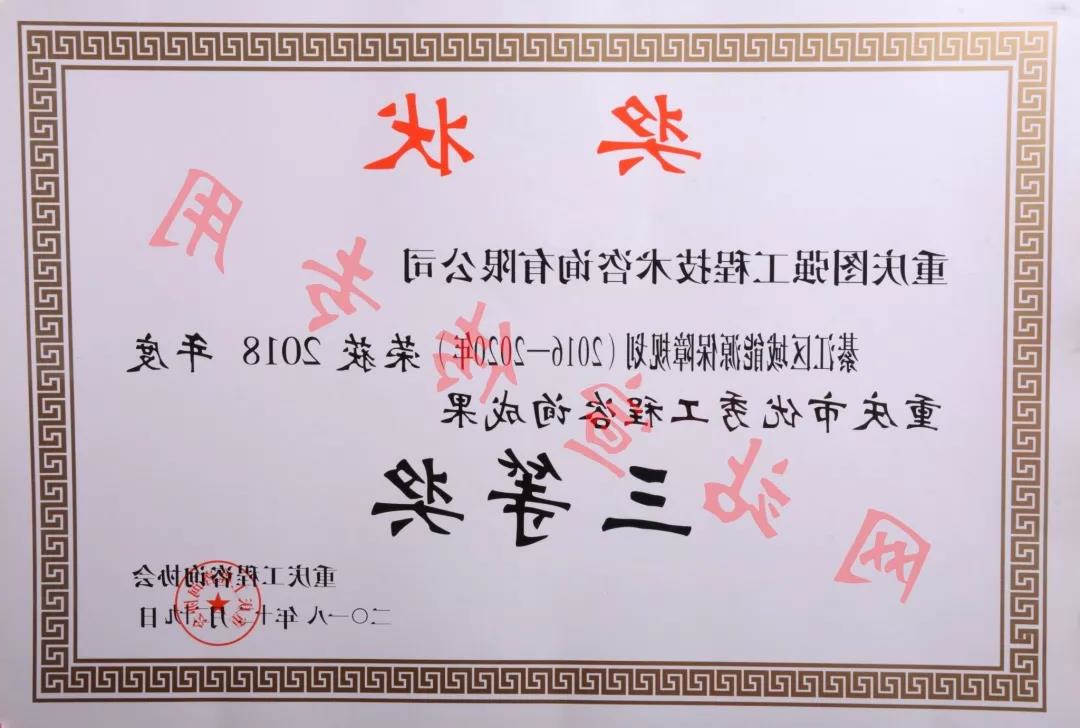 奖状
重庆图强工程技术咨询有限公司
綦江区域能源保障规划（2016—2020年）荣获 2018 年度
重庆市优秀工程咨询成果
三等奖
重庆工程咨询协会
二〇一八年十二月十九日
网站